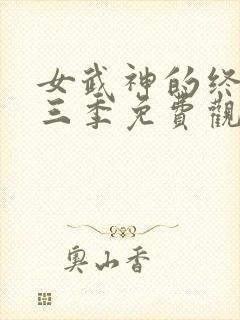 女武神的终
三季免費觀
奥山香